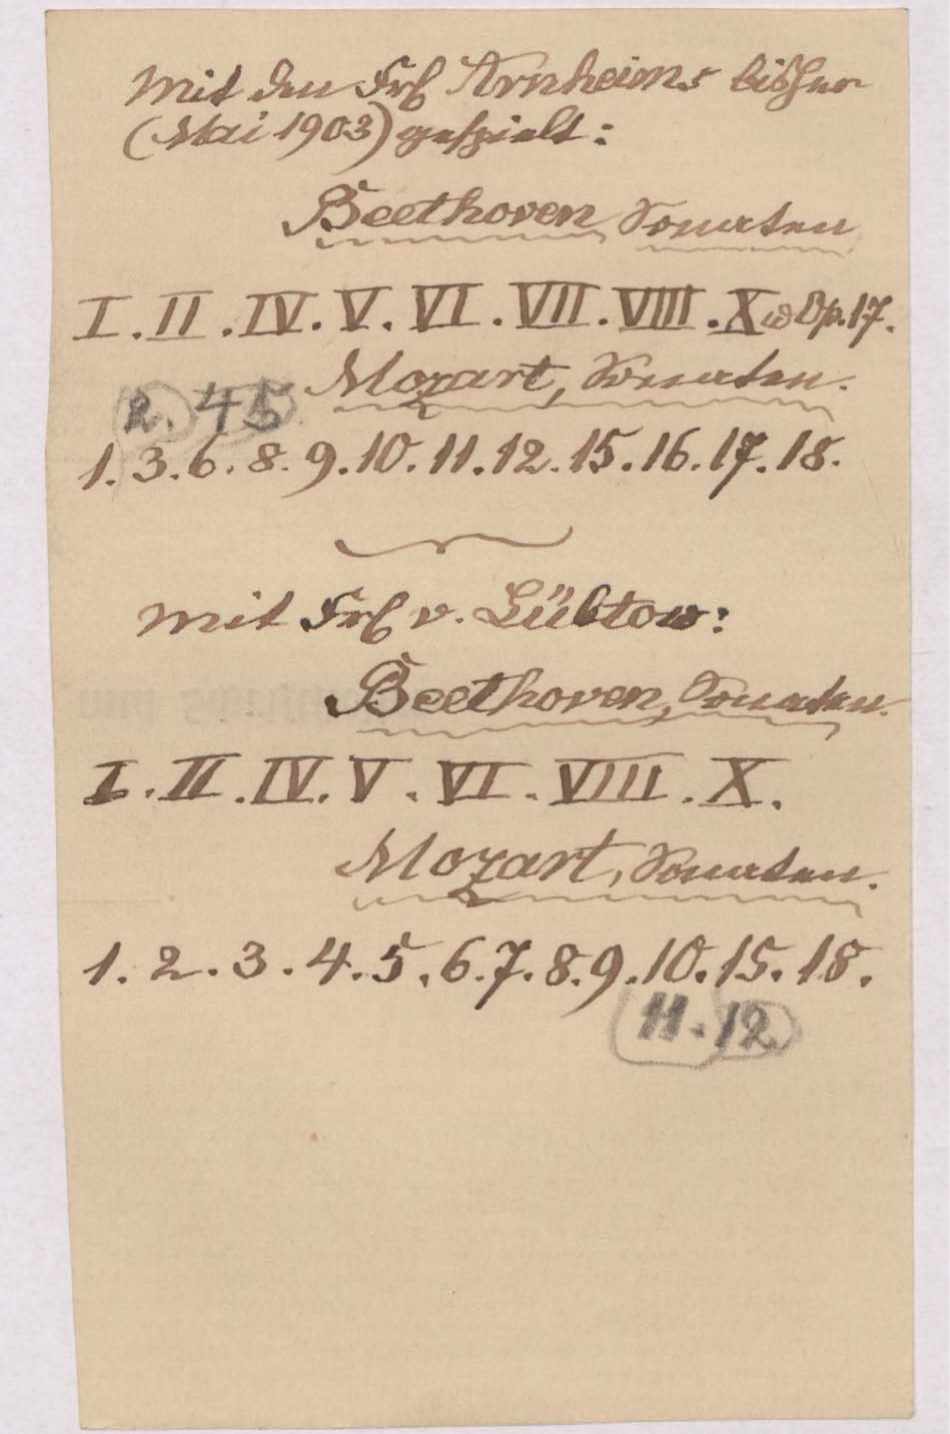 Mit den Frl Arnheims bisher
(Mai 1903) gespielt:
Beethoven Sonaten
I. II. IV. V. VI. VII. VIII. X u Op. 17.
Mozart, Sonaten.
2. 4 5
1. 3. 6. 8. 9. 10. 11. 12. 15. 16. 17. 18.
Mit Frl v. Lübtow:
Beethoven, Sonaten.
I. II. IV. V. VI. VIII. X.
Mozart, Sonaten.
1. 2. 3. 4. 5. 6. 7. 8. 9. 10. 15. 18.
11. 12